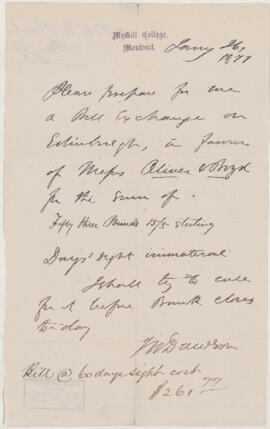 McGill College,
Montreal.
Jany 26,
1877
Please prepare for me
a Bill Exchange on
Edinburgh, in favour
of Messrs Oliver & Boyd
for the sum of
Fifty three Pounds 15/5 sterling
Days' sight immaterial
I shall try to call
for it before Bank closes
to-day
JW Dawson
Bill @ 60 days sight cost
$261 77